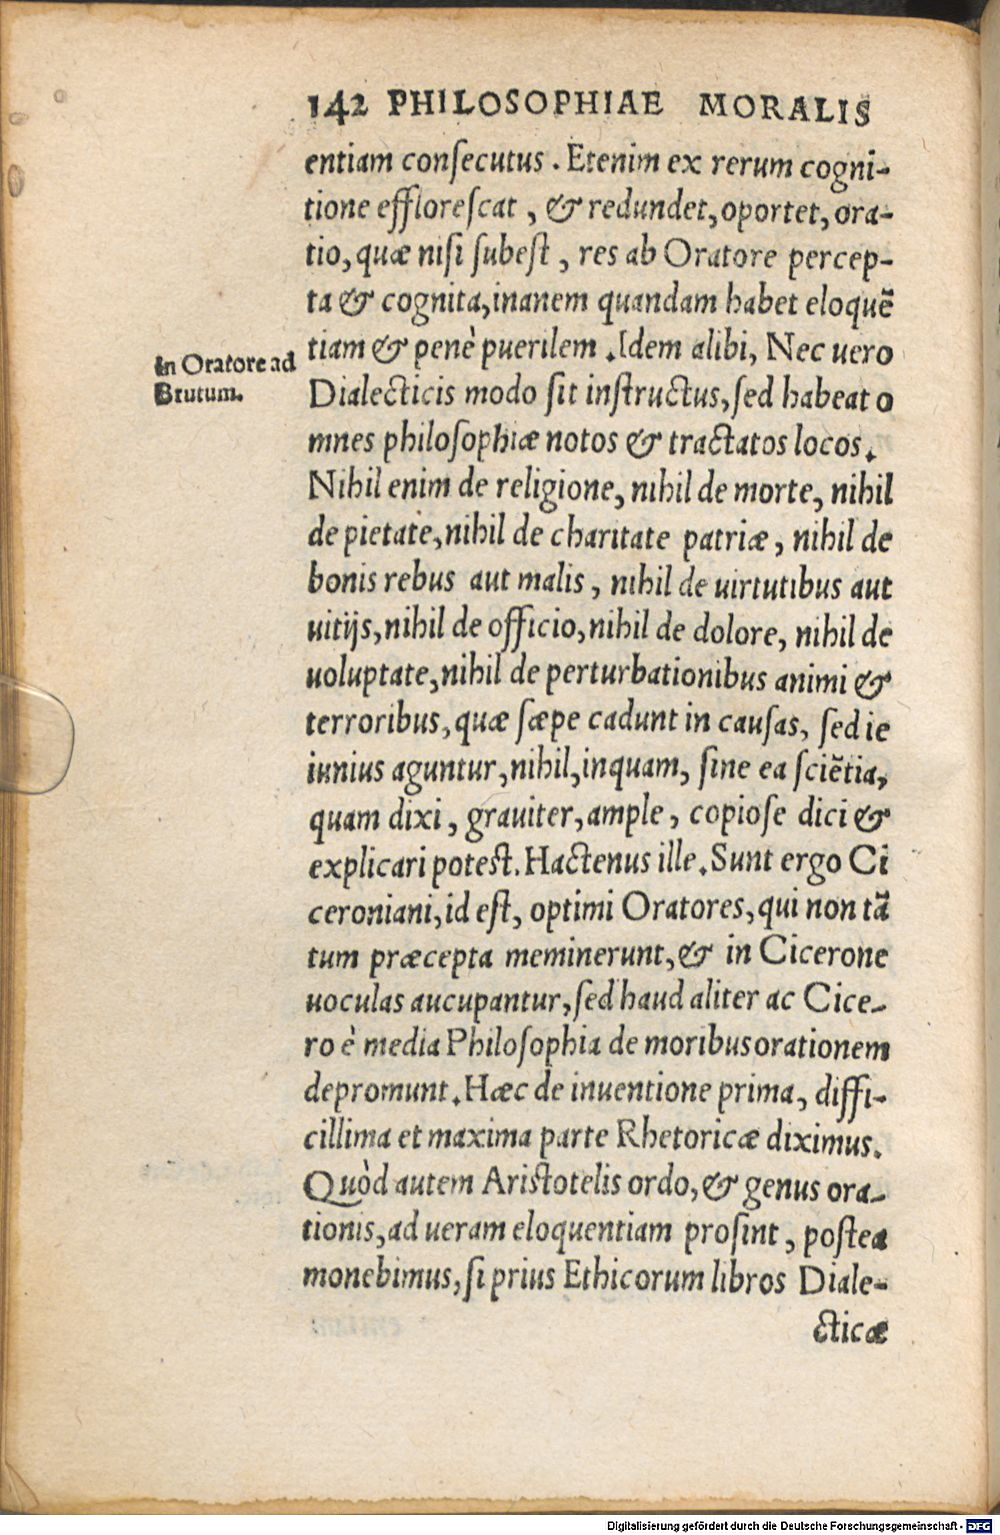 142 PHILOSOPHIAE MORALIS
entiam consecutus. Etenim ex rerum cogni-
tione efflorescat, & redundet, oportet, ora-
tio, quæ nisi subest, res ab Oratore percep-
ta & cognita, inanem quandam habet eloquẽ
tiam & penè puerilem. Idem alibi, Nec uero
In Oratore ad
Brutum.
Dialecticis modo sit instructus, sed habeat o
mnes philosophiæ notos & tractatos locos.
Nihil enim de religione, nihil de morte, nihil
de pietate, nihil de charitate patriæ, nihil de
bonis rebus aut malis, nihil de uirtutibus aut
uitijs, nihil de officio, nihil de dolore, nihil de
uoluptate, nihil de perturbationibus animi &
terroribus, quæ sæpe cadunt in causas, sed ie
iunius aguntur, nihil, inquam, sine ea sciẽtia,
quam dixi, grauiter, ample, copiose dici &
explicari potest. Hactenus ille. Sunt ergo Ci
ceroniani, id est, optimi Oratores, qui non tã
tum præcepta meminerunt, & in Cicerone
uoculas aucupantur, sed haud aliter ac Cice-
ro è media Philosophia de moribus orationem
depromunt. Hæc de inuentione prima, diffi-
cillima et maxima parte Rhetoricæ diximus.
Quòd autem Aristotelis ordo, & genus ora-
tionis, ad ueram eloquentiam prosint, postea
monebimus, si prius Ethicorum libros Diale-
cticæ
Digitalisierung gefördert durch die Deutsche Forschungsgemeinschaft - DFG